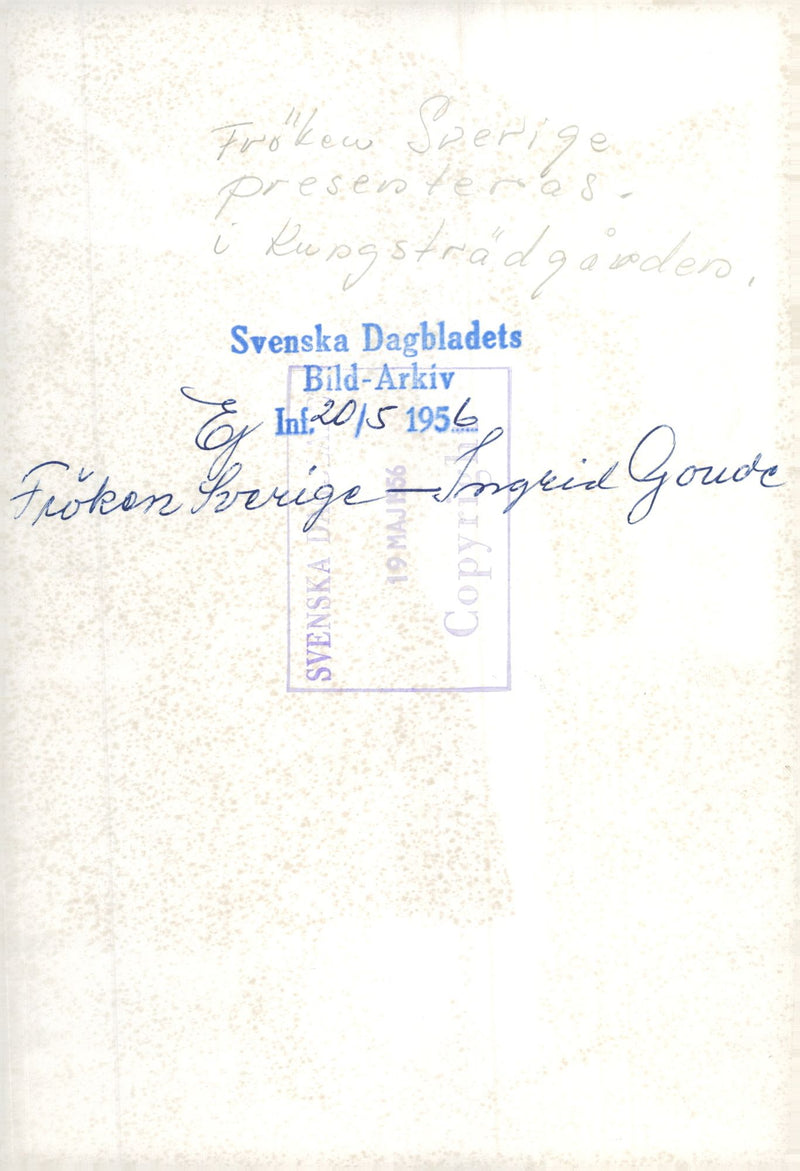 Fröken Sverige
presenteras.
i Kungsträdgården.
Svenska Dagbladets
Bild-Arkiv
Ej Inf. 20/5 1956
Fröken Sverige — Ingrid Goude
SVENSKA
19 MAJ 1956
Copyright